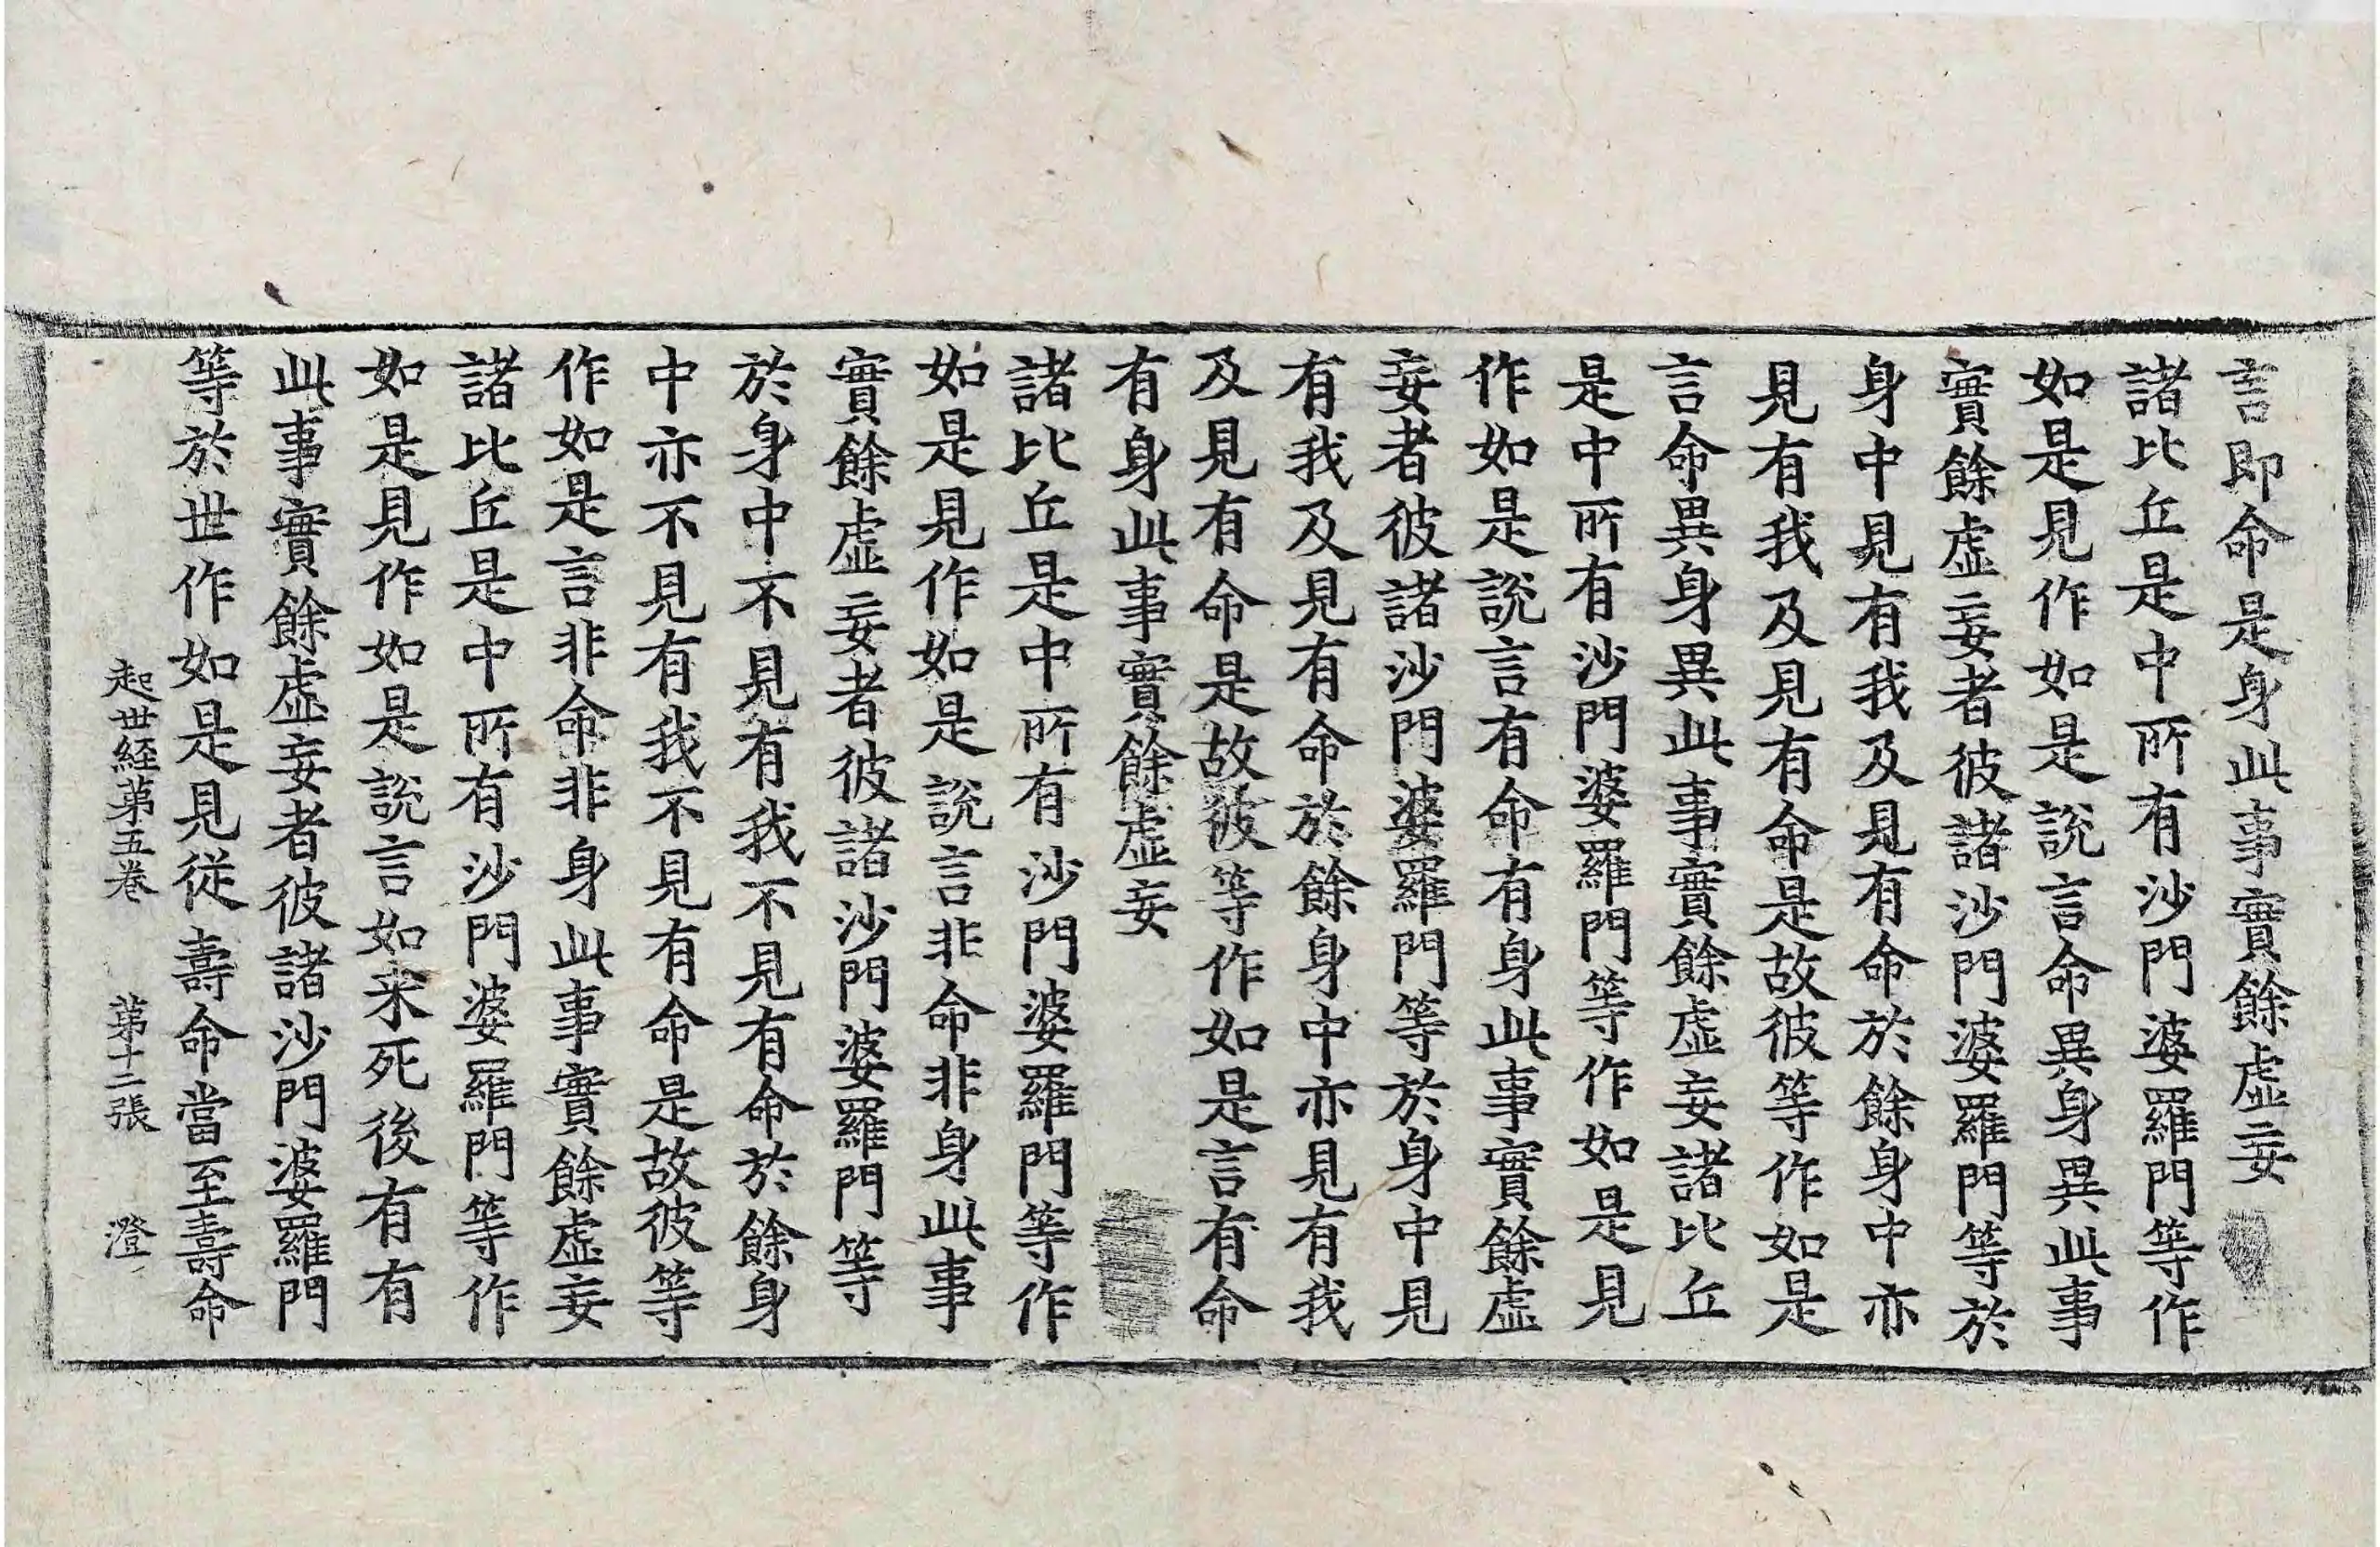 言即命是身此事實餘虛妄
諸比丘是中所有沙門婆羅門等作
如是見作如是說言命異身異此事
實餘虛妄者彼諸沙門婆羅門等於
身中見有我及見有命於餘身中亦
見有我及見有命是故彼等作如是
言命異身異此事實餘虛妄諸比丘
是中所有沙門婆羅門等作如是見
作如是說言有命有身此事實餘虛
妄者彼諸沙門婆羅門等於身中見
有我及見有命於餘身中亦見有我
及見有命是故彼等作如是言有命
有身此事實餘虛妄
諸比丘是中所有沙門婆羅門等作
如是見作如是說言非命非身此事
實餘虛妄者彼諸沙門婆羅門等
於身中不見有我不見有命於餘身
中亦不見有我不見有命是故彼等
作如是言非命非身此事實餘虛妄
諸比丘是中所有沙門婆羅門等作
如是見作如是說言如来死後有有
此事實餘虛妄者彼諸沙門婆羅門
等於世作如是見從壽命當至壽命
起世経第五卷 第十二張 澄